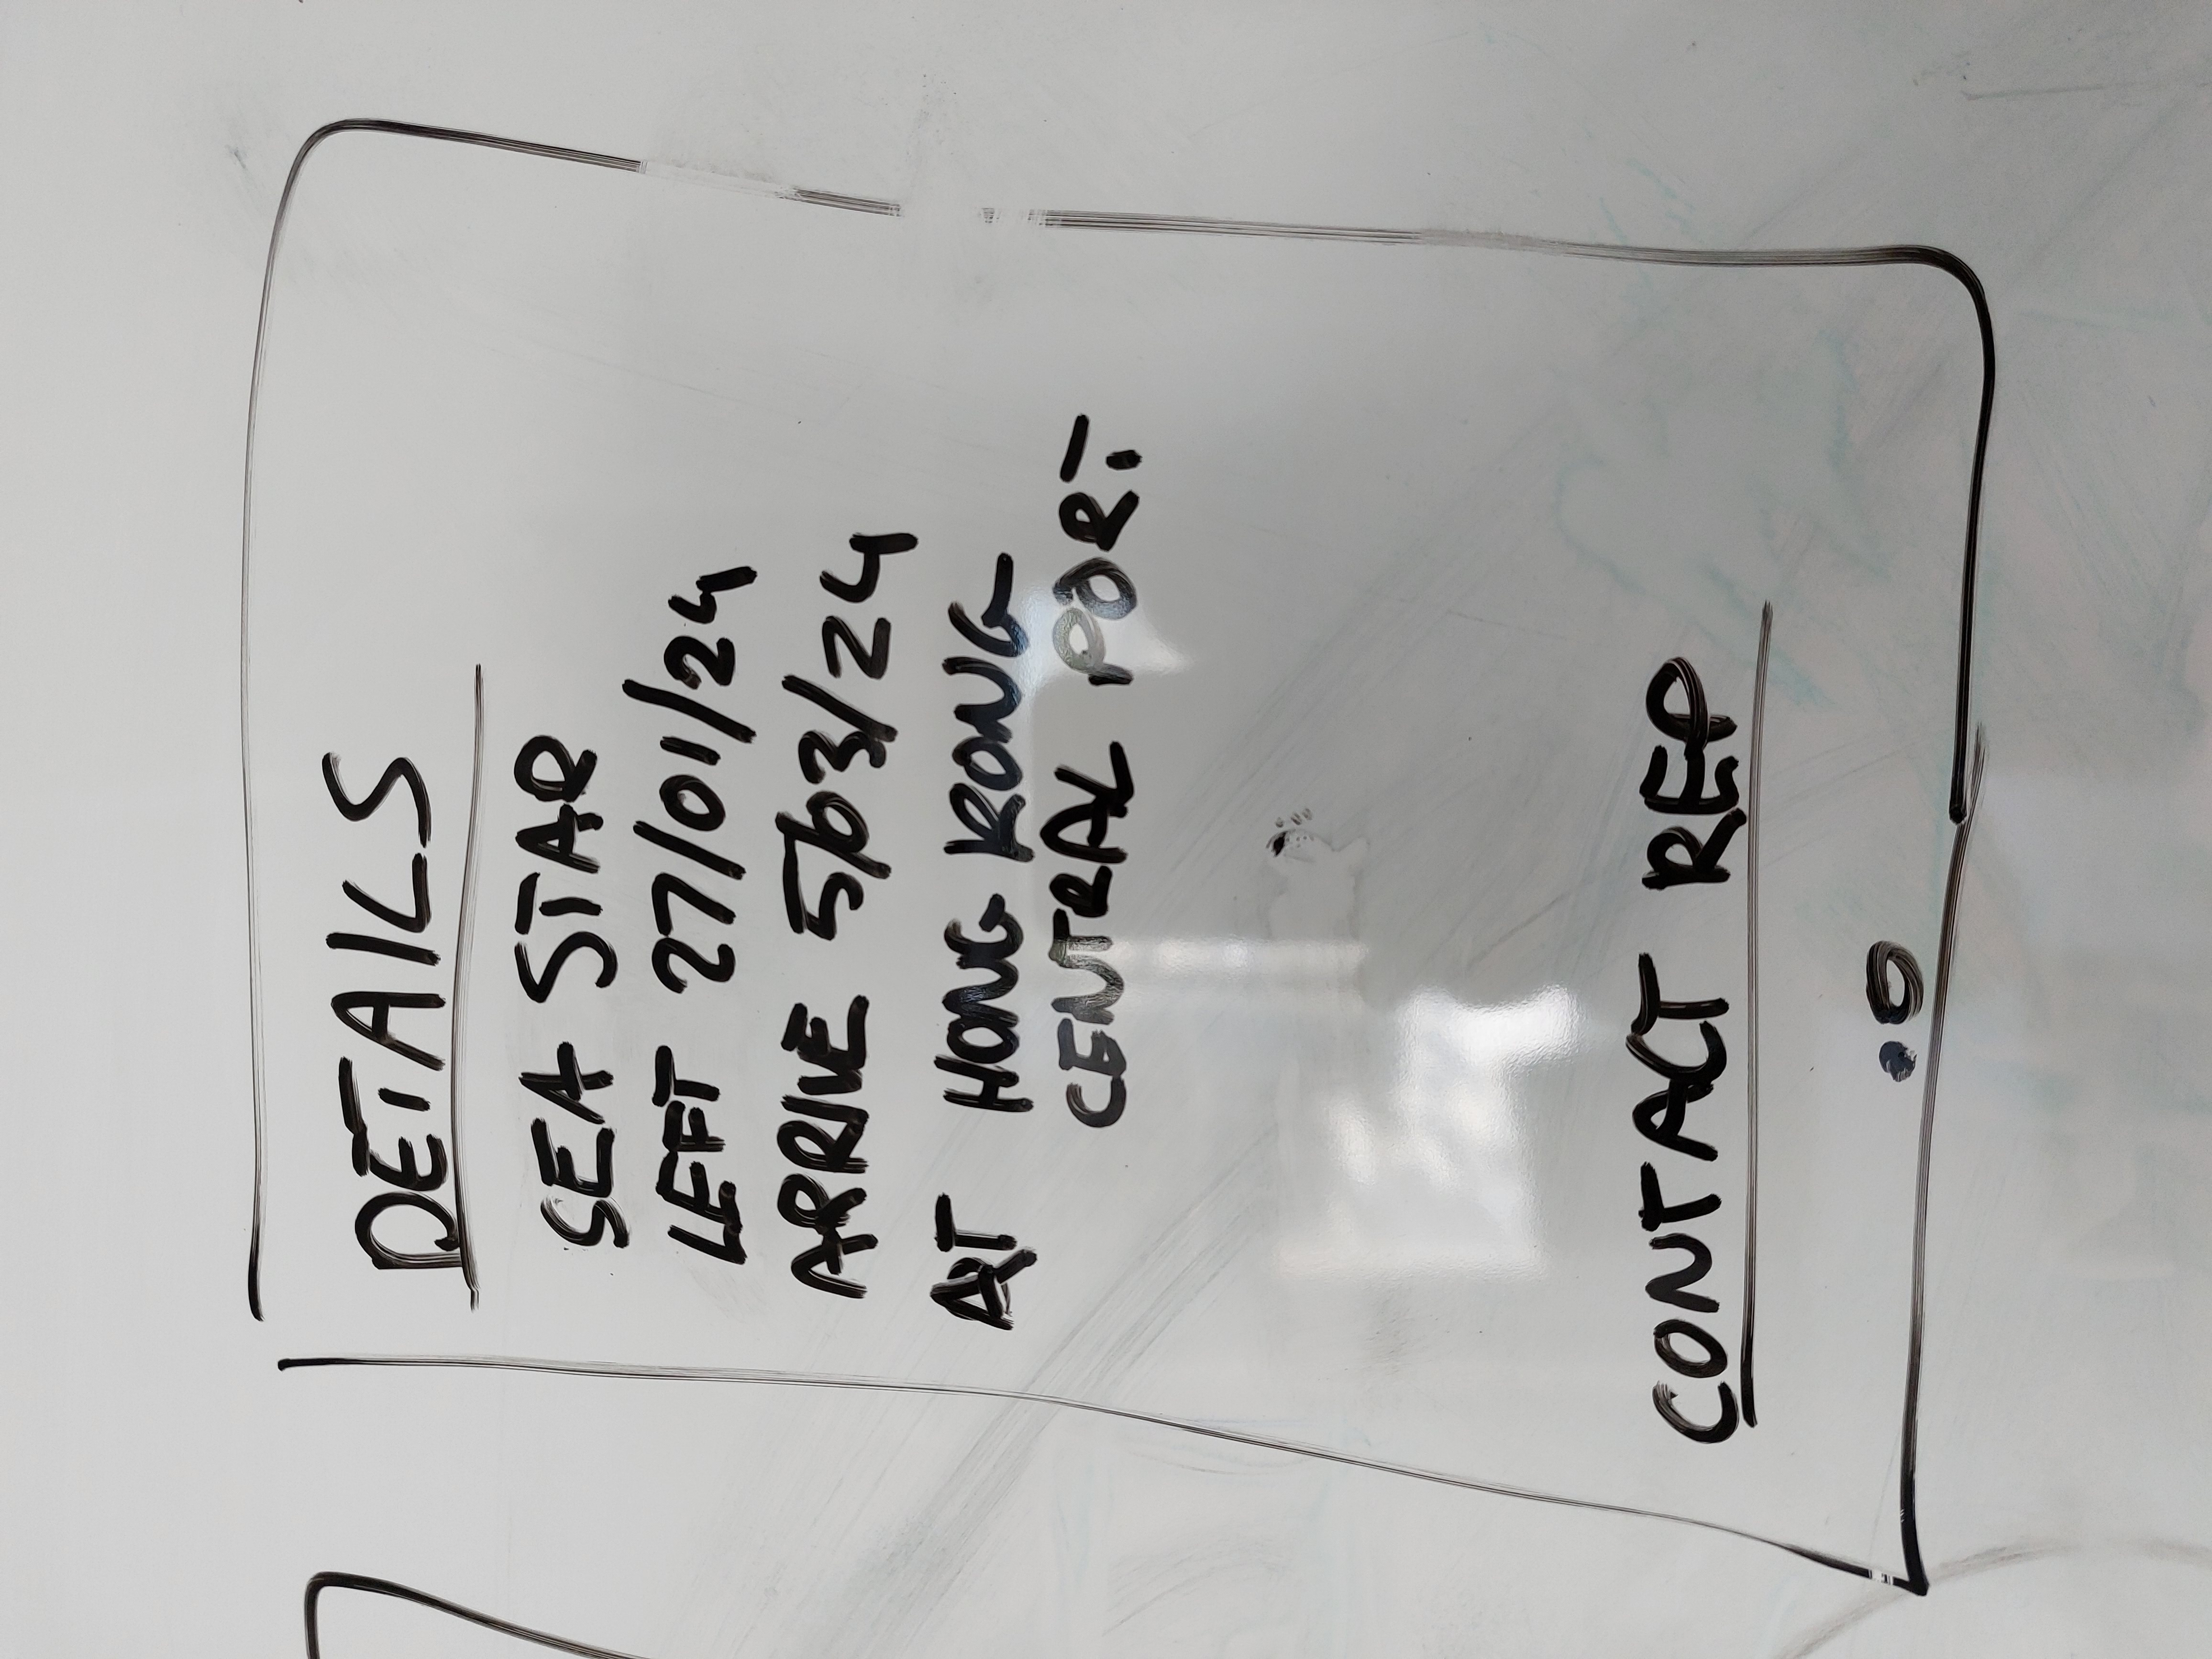 DETAILS
SEA STAR
LEFT 27/01/24
ARRIVE 5/03/24
AT HONG KONG
CENTRAL PORT
CONTACT REP